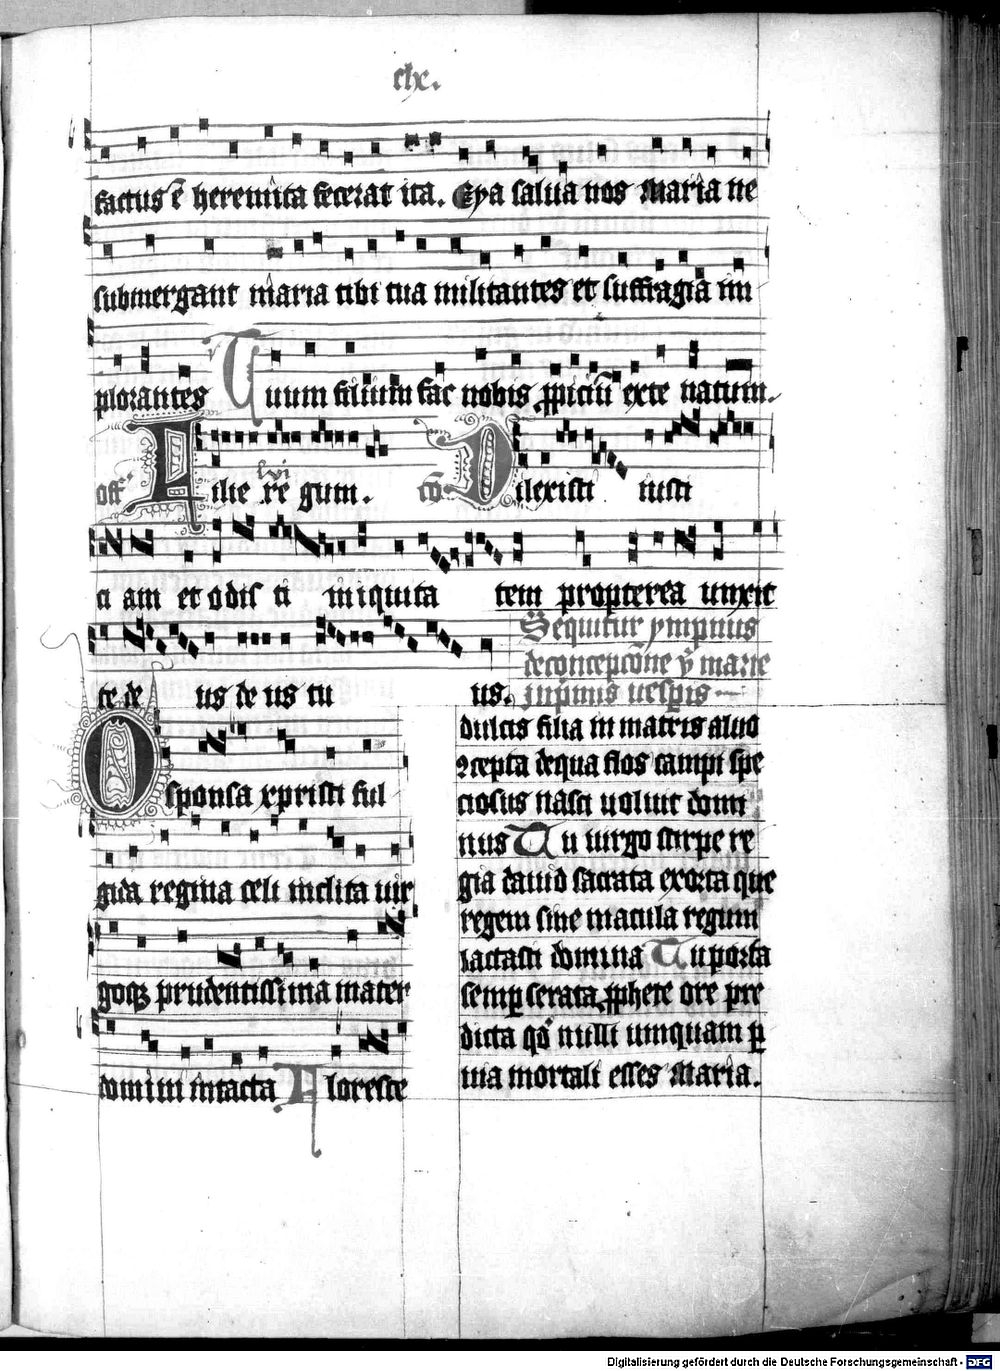 clxc.
factus ē heremita fecerat ita. Eya salua nos maria ne
submergant maria tibi tua militantes et suffragia im
plorantes Tuum filium fac nobis ꝓpiciū ex te natum.
off Filie re gum. lvi cō Dilexisti iusti
ci am et odis ti iniquita tem propterea unxit
te de us de us tu us.
Sequitur ympnus
de concepcōne v̄ marie
in pmis vesperis
O sponsa xpristi ful
gida regina celi inclita uir
goqȝ prudentissima mater
domini intacta Floreste
dulcis filia in matris aluo
ꝯcepta de qua flos campi spe
ciosus nasci uoluit domi
nus Tu uirgo stirpe re
gia dauid sacrata exorta que
regem sine macula regum
lactasti domina Tu porta
semꝑ serata ꝓphete ore pre
dicta qō nulli umquam ꝑ
uia mortali esses maria.
Digitalisierung gefördert durch die Deutsche Forschungsgemeinschaft - DFG